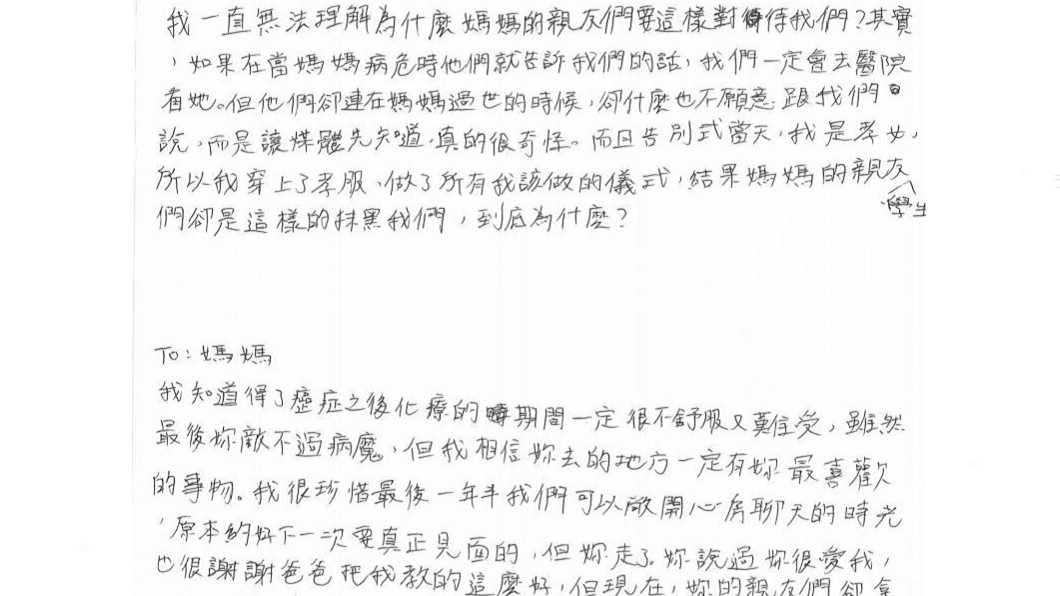 我一直無法理解為什麼媽媽的親友們要這樣對待我們?其實
，如果在當媽媽病危時他們就告訴我們的話，我們一定會去醫院
看她。但他們卻連在媽媽過世的時候，卻什麼也不願意跟我們
說，而是讓媒體先知道，真的很奇怪。而且告別式當天，我是孝女，
所以我穿上了孝服、做了所有我該做的儀式，結果媽媽的親友
學生
們卻是這樣的抹黑我們，到底為什麼?
To:媽媽
我知道得了癌症之後化療的期間一定很不舒服又難受，雖然
最後妳敵不過病魔，但我相信妳去的地方一定有妳最喜歡
的事物。我很珍惜最後一年半我們可以敞開心房聊天的時光
，原本約好下一次要真正見面的，但妳走了。妳說過妳很愛我，
也很謝謝爸爸把我教的這麼好，但現在，妳的親友們卻拿